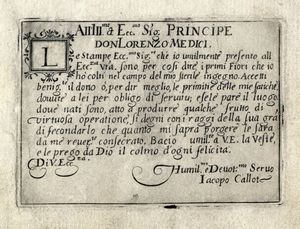 All Ill.mo & Ecc.mo Sig. PRINCIPE
DON LORENZO MEDICI.
Le Stampe Ecc.mo Sig.re che io umilmente presento all
Ecc.za Vra, sono per così dire i primi Fiori che io
hò colti nel campo del mio sterile ingegno. Accetti
benig.te il dono ò, per dir meglio, le primitie delle mie fatiche,
douute a lei per obligo di seruitu; e se le pare il luogo
doue nati sono, atto à produrre qualche frutto di
virtuosa operatione, si degni con i raggi della sua gra
di fecondarlo che quanto mi saprà porgere le sarà
da me reuer.te consecrato, Bacio umil.te a V.E. la Veste,
e le prego da Dio il colmo d'ogni felicita.
Di V. Ecc.za
Humil.mo e Deuot.mo Seruo
Iacopo Callot